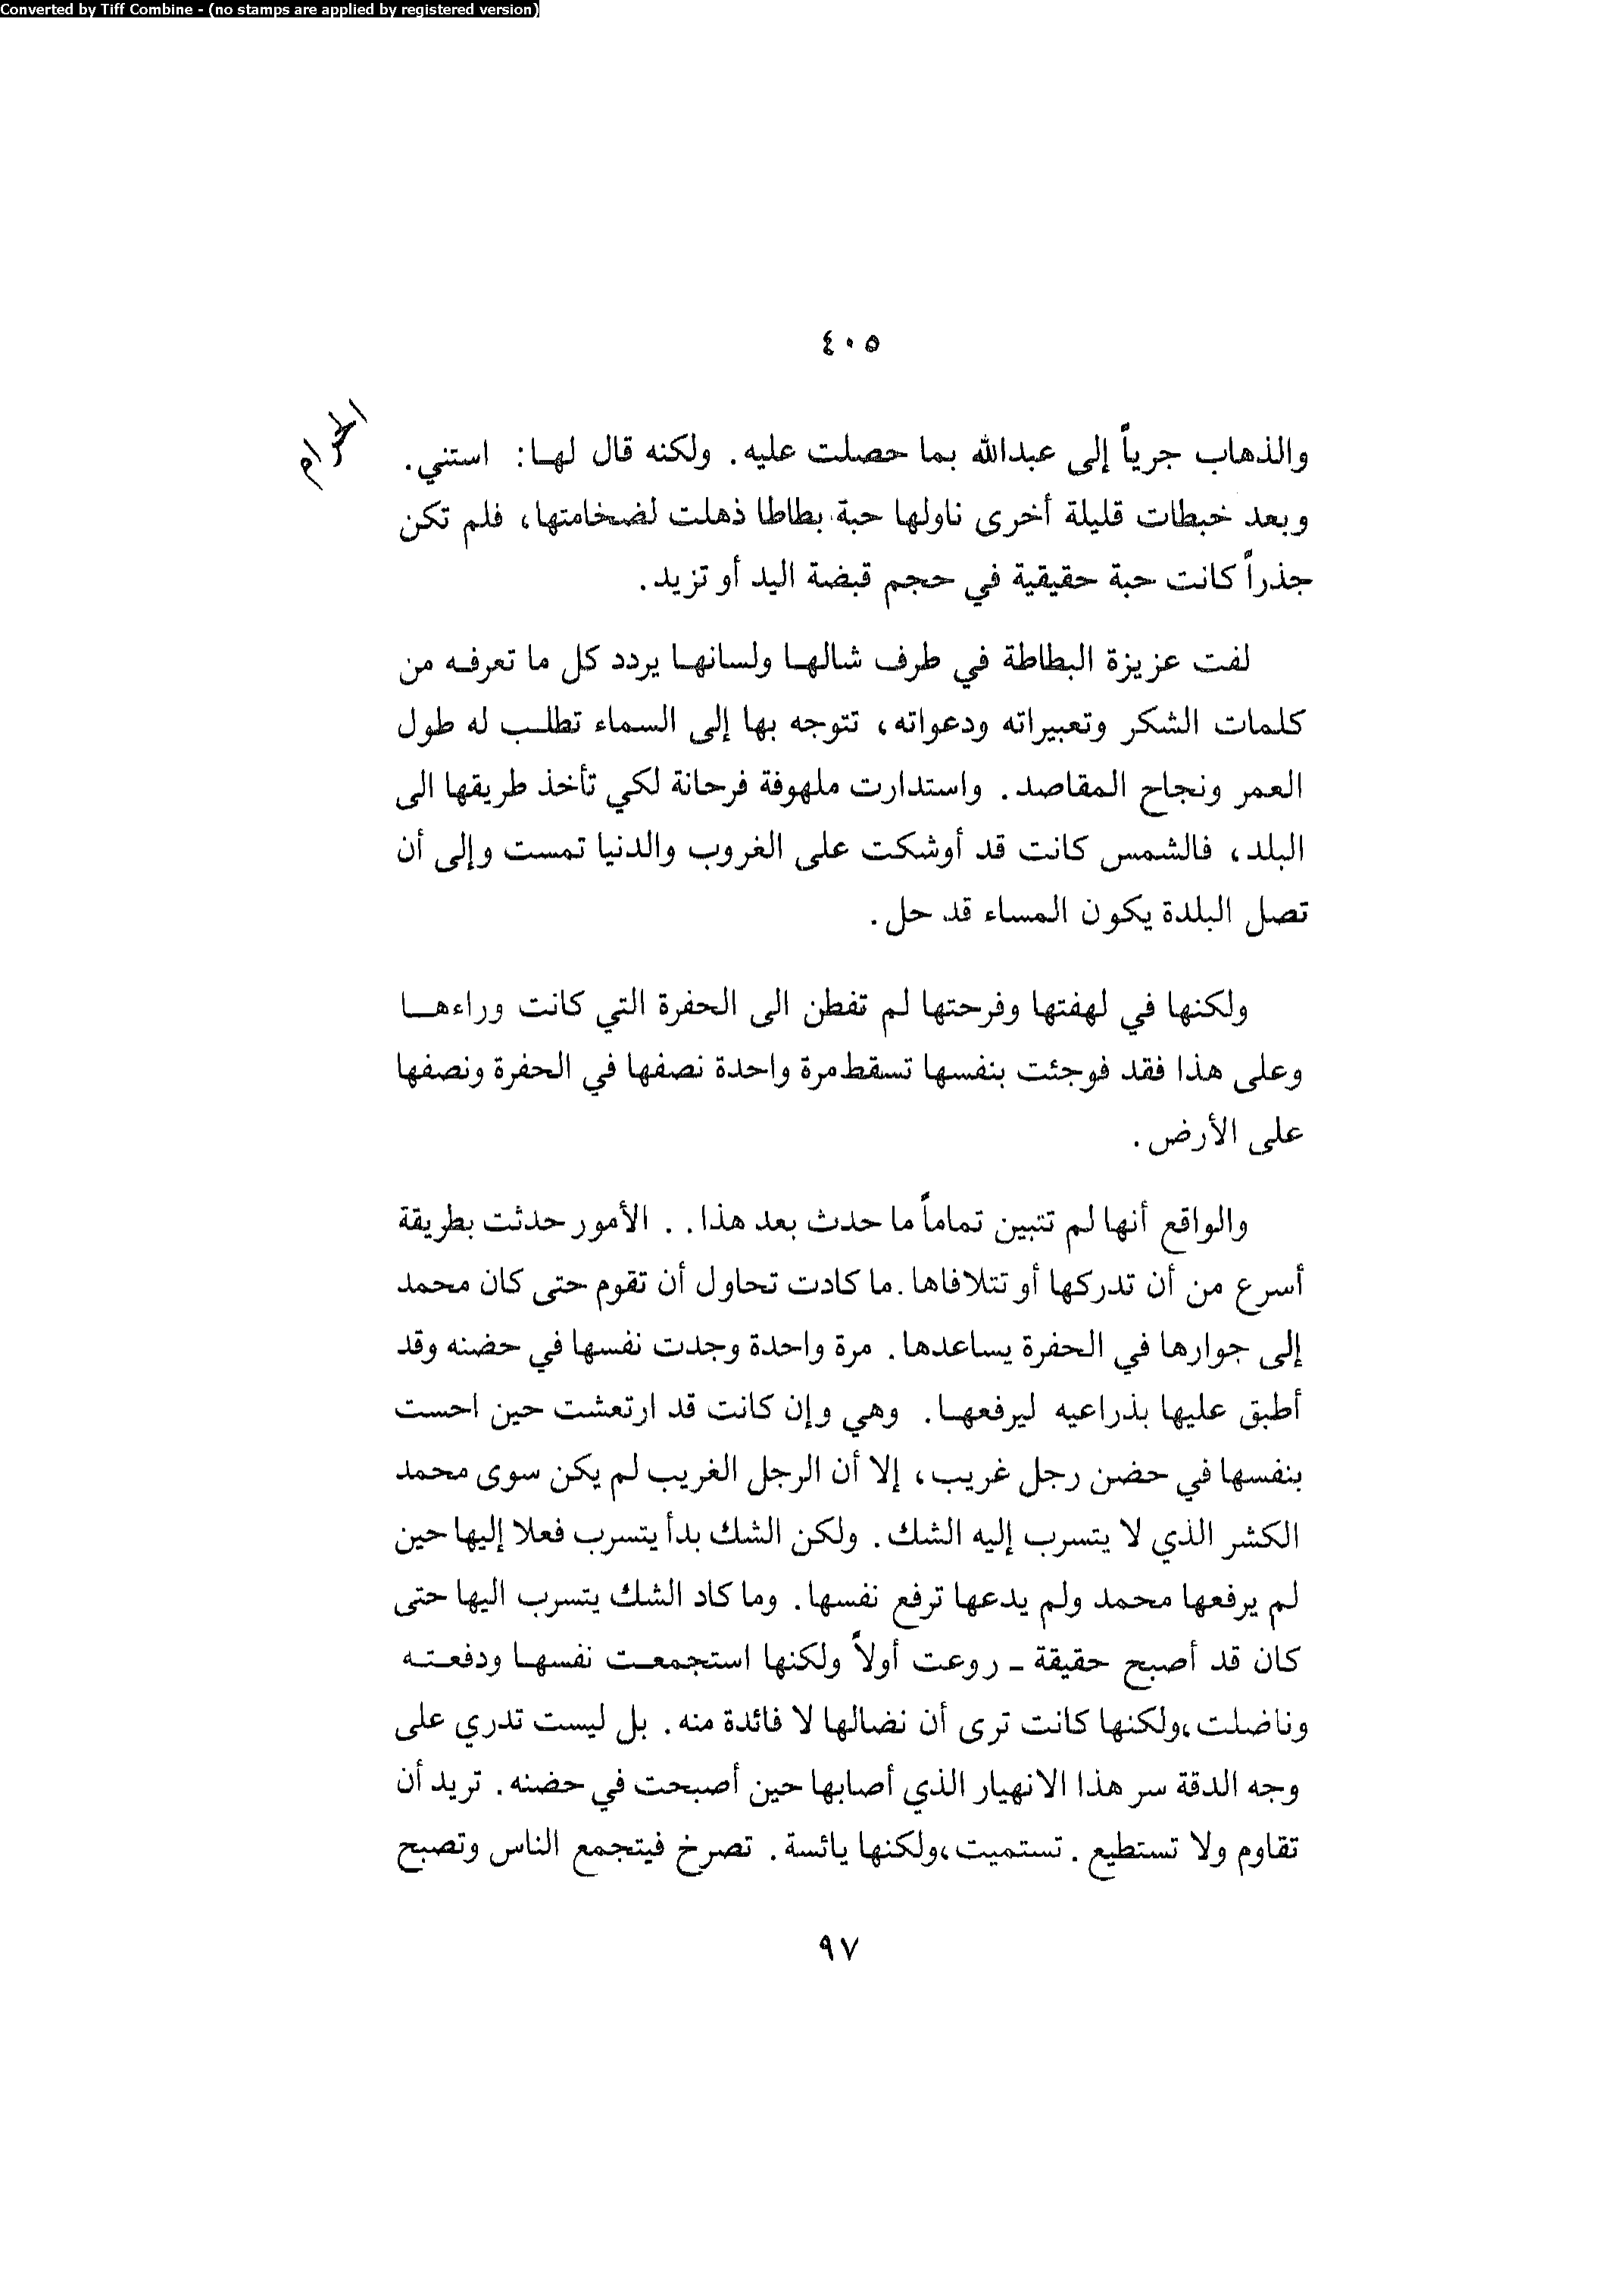 Converted by Tiff Combine - (no stamps are applied by registered version)
٤٠٥
الحرام
والذهاب جرياً إلى عبدالله بما حصلت عليه. ولكنه قال لهـا: استني.
وبعد خبطات قليلة أخرى ناولها حبة بطاطا ذهلت لضخامتها، فلم تكن
جذراً كانت حبة حقيقية في حجم قبضة اليد أو تزيد.
لفت عزيزة البطاطة في طرف شالهـا ولسانهـا يردد كل ما تعرفـه من
كلمات الشكر وتعبيراته ودعواته، تتوجه بها إلى السماء تطلـب له طول
العمر ونجاح المقاصد. واستدارت ملهوفة فرحانة لكي تأخذ طريقها الى
البلد، فالشمس كانت قد أوشكت على الغروب والدنيا تمست وإلى أن
تصل البلدة يكون المساء قد حل.
ولكنها في لهفتها وفرحتها لم تفطن الى الحفرة التي كانت وراءهـا
وعلى هذا فقد فوجئت بنفسها تسقط مرة واحدة نصفها في الحفرة ونصفها
على الأرض.
والواقع أنها لم تتبين تماماً ما حدث بعد هذا.. الأمور حدثت بطريقة
أسرع من أن تدركها أو تتلافاها. ما كادت تحاول أن تقوم حتى كان محمد
إلى جوارها في الحفرة يساعدها. مرة واحدة وجدت نفسها في حضنه وقد
أطبق عليها بذراعيه ليرفعهـا. وهي وإن كانت قد ارتعشت حين احست
بنفسها في حضن رجل غريب، إلا أن الرجل الغريب لم يكن سوى محمد
الكشر الذي لا يتسرب إليه الشك. ولكن الشك بدأ يتسرب فعلا إليها حين
لم يرفعها محمد ولم يدعها ترفع نفسها. وما كاد الشك يتسرب اليها حتى
كان قد أصبح حقيقة - روعت أولاً ولكنها استجمعـت نفسهـا ودفعـتـه
وناضلت،ولكنها كانت ترى أن نضالها لا فائدة منه. بل ليست تدري على
وجه الدقة سر هذا الانهيار الذي أصابها حين أصبحت في حضنه. تريد أن
تقاوم ولا تستطيع. تستميت،ولكنها يائسة. تصرخ فيتجمع الناس وتصبح
٩٧